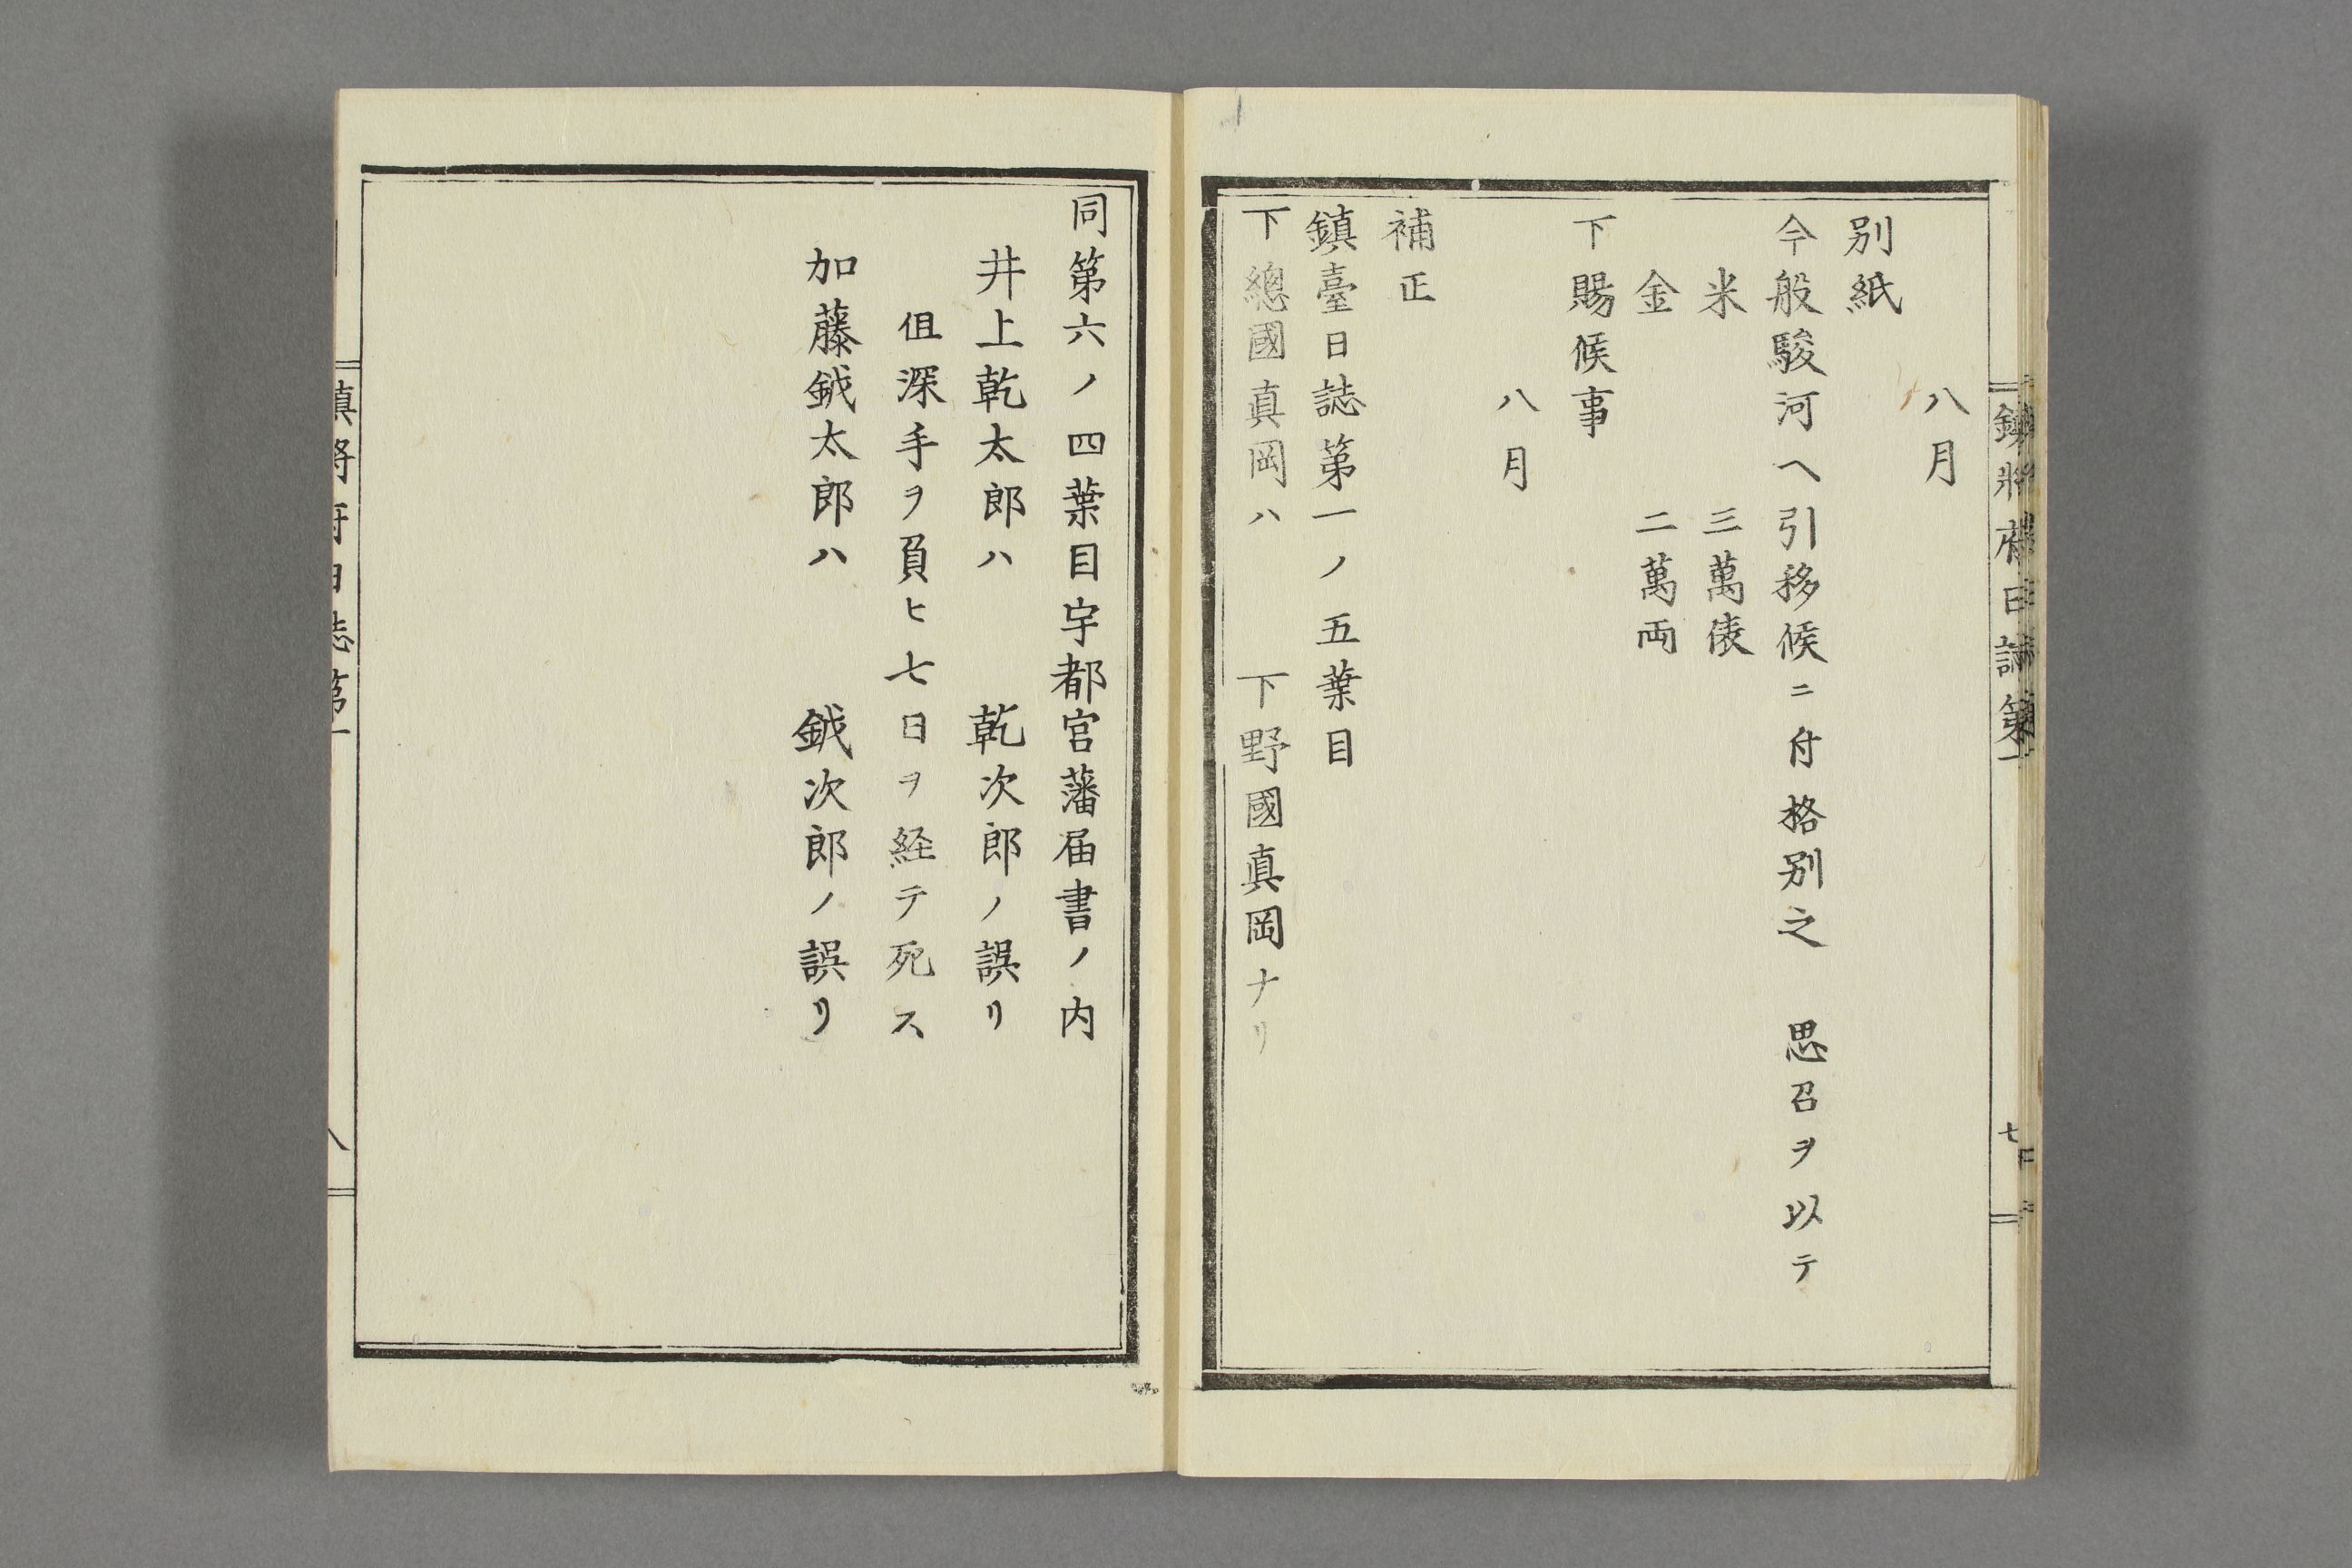 鎮將府日誌第一
七
八月
別紙
今般駿河ヘ引移候ニ付格別之　思召ヲ以テ
米　三萬俵
金　二萬両
下賜候事
八月
補正
鎮臺日誌第一ノ五葉目
下總國真岡ハ　下野國真岡ナリ
同第六ノ四葉目宇都宮藩届書ノ内
井上乾太郎ハ　乾次郎ノ誤リ
伹深手ヲ負ヒ七日ヲ経テ死ス
加藤鉞太郎ハ　鉞次郎ノ誤リ
鎮將府日誌第一
八